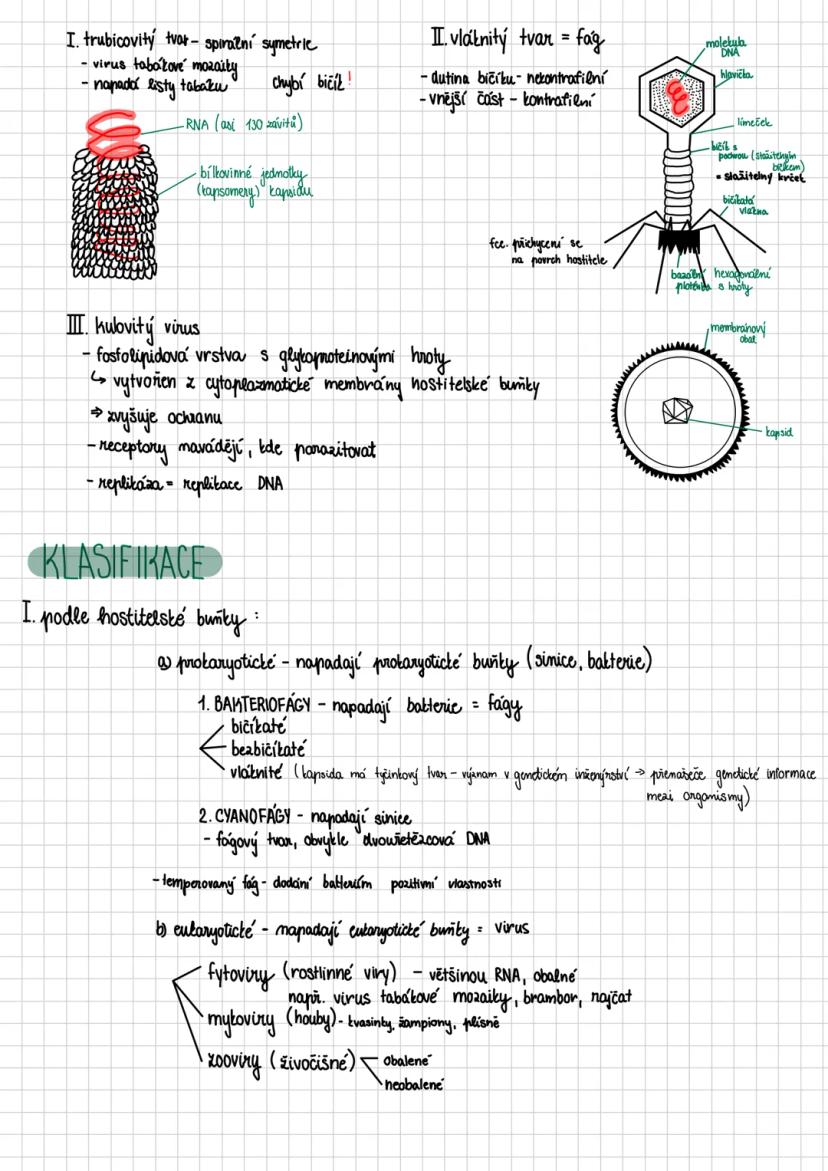 I. trubicovitý tvar - spirální symetrie
- virus tabákové mozaiky
- napadá listy tabáku chybí bičík!
RNA (asi 130 závitů)
bílkovinné jednotky
(kapsomery) kapsidu
II. vláknitý tvar = fág
- dutina bičíku - nekontrafilní
- vnější část - kontrafilní
molekula
DNA
hlavička
límeček
bičík s
pochvou (stažitelným
bičkem)
= stažitelný krček
bičíkatá
vlákna
fce. přichycení se
na povrch hostitele
bazální hexagonální
ploténka s hroty
III. kulovitý virus
- fosfolipidová vrstva s glykoproteinovými hroty
↳ vytvořen z cytoplazmatické membrány hostitelské buňky
⇒ zvyšuje ochranu
- receptory navádějí, kde parazitovat
- replikáza = replikace DNA
membránový
obal
kapsid
KLASIFIKACE
I. podle hostitelské buňky :
a) prokaryotické - napadají prokaryotické buňky (sinice, bakterie)
1. BAKTERIOFÁGY - napadají bakterie = fágy
bičíkaté
bezbičíkaté
vláknité (kapsida má tyčinkový tvar - význam v genetickém inženýrství → přenašeče genetické informace
mezi organismy)
2. CYANOFÁGY - napadají sinice
- fágový tvar, obvykle dvouřetězcová DNA
- temperovaný fág - dodání bakteriím pozitivní vlastnosti
b) eukaryotické - napadají eukaryotické buňky = virus
fytoviry (rostlinné viry) - většinou RNA, obalné
např. virus tabákové mozaiky, brambor, rajčat
mykoviry (houby) - kvasinky, žampiony, plísně
zooviry (živočišné)
obalené
neobalené